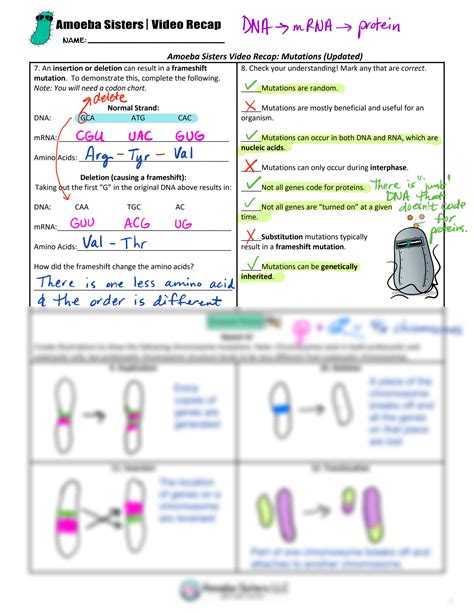 Amoeba Sisters | Video Recap
DNA → mRNA → protein
NAME:
Amoeba Sisters Video Recap: Mutations (Updated)
7. An insertion or deletion can result in a frameshift
mutation. To demonstrate this, complete the following.
Note: You will need a codon chart.
delete
Normal Strand:
DNA: GCA ATG CAC
mRNA: CGU UAC GUG
Amino Acids: Arg - Tyr - Val
Deletion (causing a frameshift):
Taking out the first "G" in the original DNA above results in:
DNA: CAA TGC AC
mRNA: GUU ACG UG
Amino Acids: Val - Thr
How did the frameshift change the amino acids?
There is one less amino acid
& the order is different
8. Check your understanding! Mark any that are correct.
✓ Mutations are random.
X Mutations are mostly beneficial and useful for an
organism.
✓ Mutations can occur in both DNA and RNA, which are
nucleic acids.
X Mutations can only occur during interphase.
✓ Not all genes code for proteins.
There is "junk"
DNA that
doesn't code
for
proteins.
✓ Not all genes are "turned on" at a given
time.
X Substitution mutations typically
result in a frameshift mutation.
✓ Mutations can be genetically
inherited.
9. Duplication
Extra
copies of
genes are
generated
10. Deletion
A piece of the
chromosome
breaks off and all
the genes
on that piece
are lost
11. Inversion
The location
of genes on a
chromosome
are reversed
12. Translocation
Part of one chromosome breaks off and
attaches to another chromosome.
Amoeba Sisters LLC